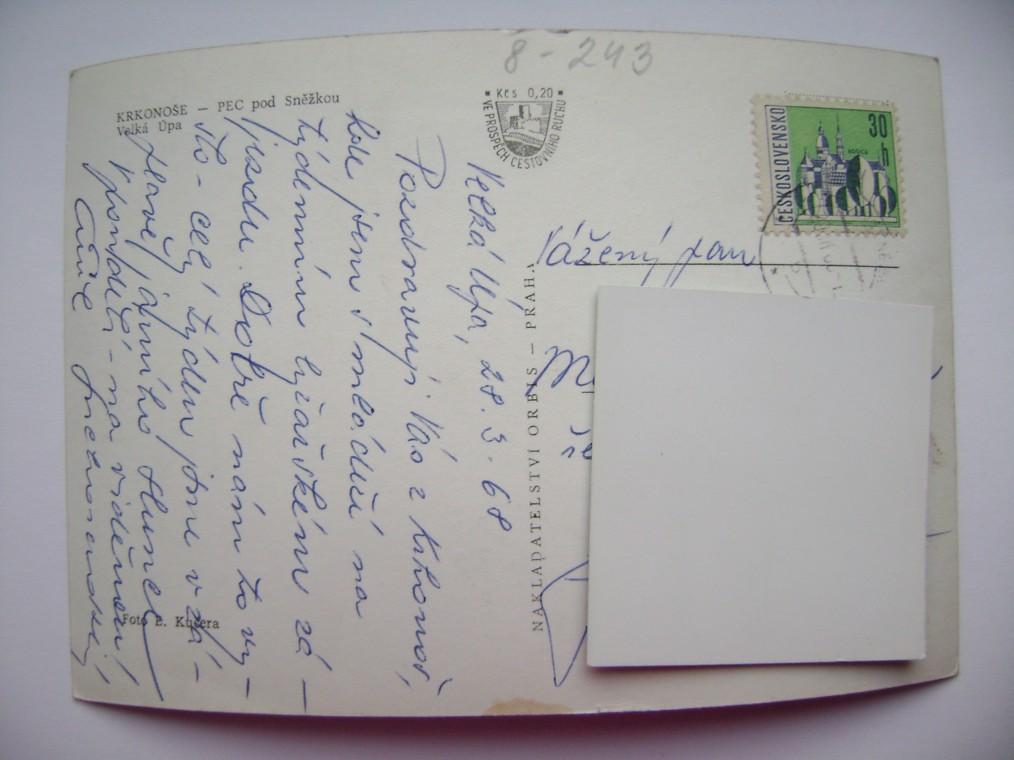 8-243
KRKONOŠE – PEC pod Sněžkou
Velká Úpa
Kčs 0,20
VE PROSPĚCH CESTOVNÍHO RUCHU
ČESKOSLOVENSKO
30 h
KOŠICE
Velká Úpa, 28. 3. 68
Pozdravuji Vás z Krkonoš,
kde jsem s mládeží na
týdenním lyžařském zá-
jezdu. Dobře nám to vy-
šlo - celý týden jsme v zá-
plavě jarního slunce
V pondělí - na viděnou!
Vážený pan
NAKLADATELSTVÍ ORBIS – PRAHA
Foto E. Kučera